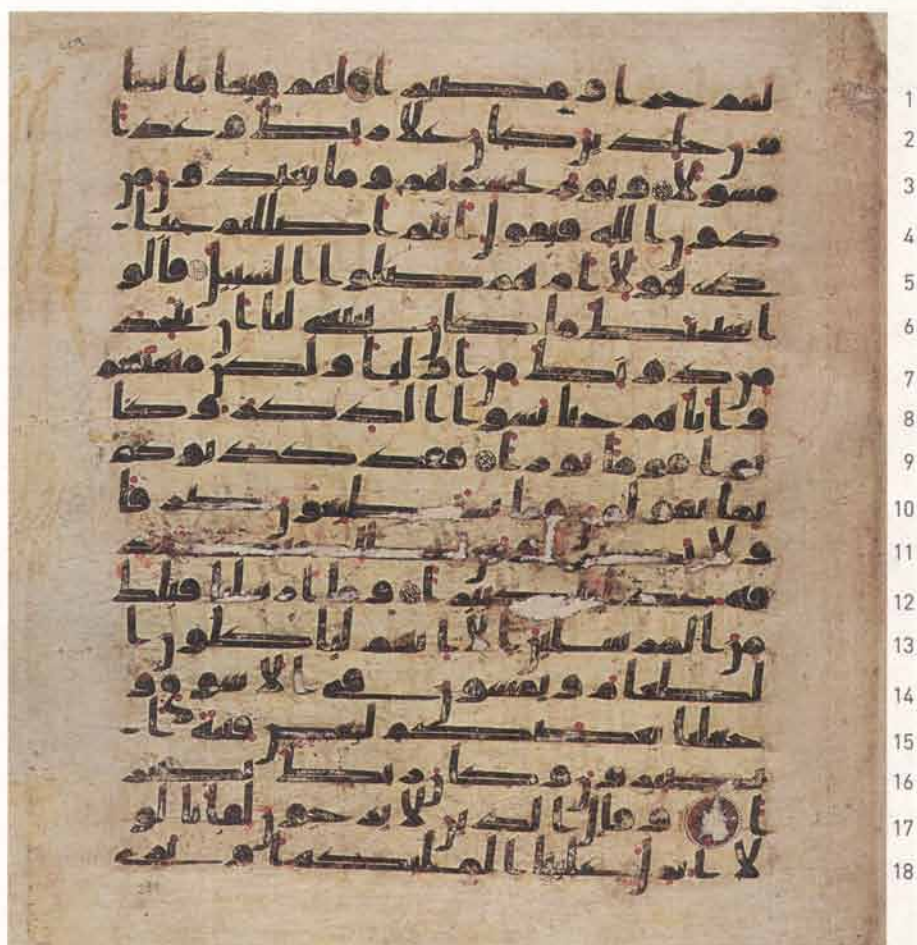 لهم جزا و مصيرا لهم فيها ما يشا
ون خلدين كان على ربك وعدا
مسولا ويوم يحشرهم وما يعبدون من
دون الله فيقول اانتم اضللتم عبا
دي هولا ام هم ضلوا السبيل قالو
ا سبحنك ما كان ينبغي لنا ان نتخذ
من دونك من اوليا ولكن متعتهم
وابا هم حتى نسوا الذكر وكا
نوا قوما بورا فقد كذبوكم
بما تقولون فما تستطيعون صرفا
ولا نصرا ومن يظلم منكم نذ
قه عذابا كبيرا وما ارسلنا قبلك
من المرسلين الا انهم ليا كلون ا
لطعام ويمشون في الاسوق و
جعلنا بعضكم لبعض فتنة ا
تصبرون وكان ربك بصير
ا وقال الذين لا يرجون لقانا لو
لا انزل علينا الملئكة او نرى
1
2
3
4
5
6
7
8
9
10
11
12
13
14
15
16
17
18